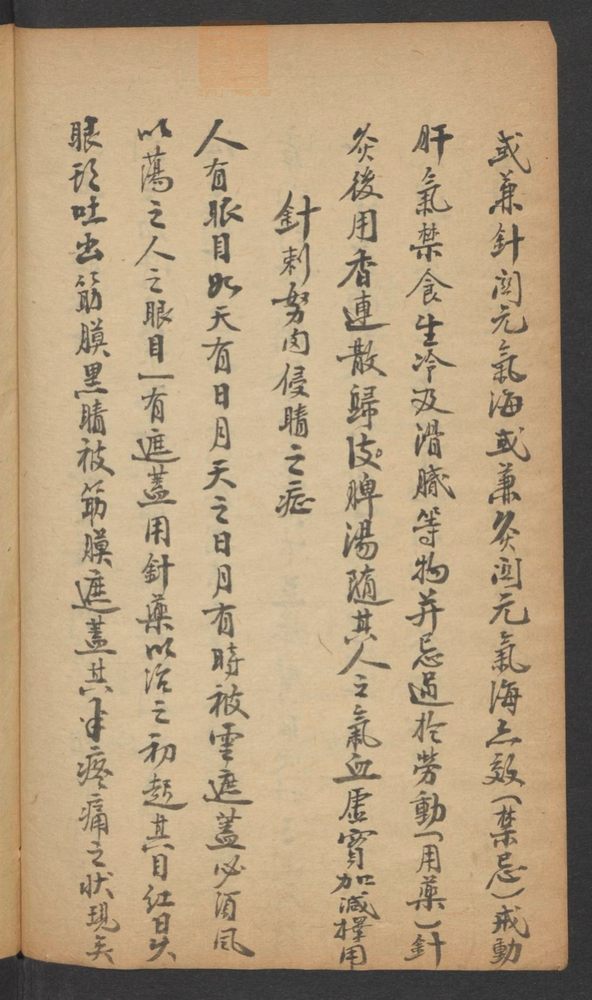 或兼針関元氣海或兼灸関元氣海亦效(禁忌)戒動
肝氣禁食生冷及滑膩等物并忌過於勞動(用藥)針
灸後用香連散歸脾湯隨其人之氣血虛實加減擇用
針刺努肉侵睛之症
人有眼目如天有日月天之日月有時被雲遮蓋必須風
以蕩之人之眼目一有遮蓋用針藥以治之初起其目紅
眼珍吐出筋膜黑睛被筋膜遮蓋其半疼痛之狀現矣